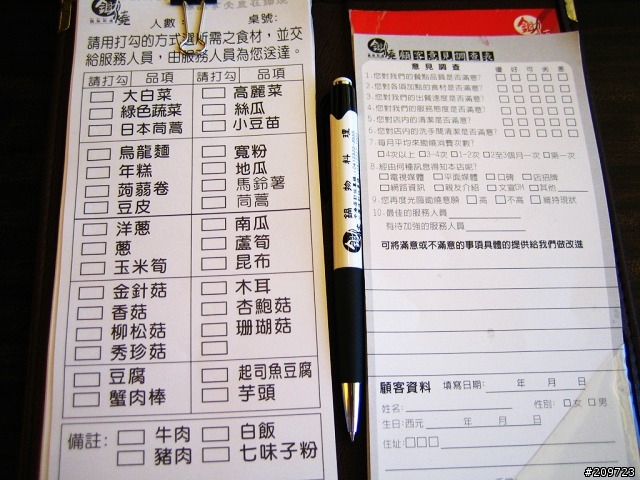 人數: 桌號:
請用打勾的方式選所需之食材，並交
給服務人員，由服務人員為您送達。
請打勾 品項 請打勾 品項
大白菜 高麗菜
綠色蔬菜 絲瓜
日本茼蒿 小豆苗
烏龍麵 寬粉
年糕 地瓜
蒟蒻卷 馬鈴薯
豆皮 茼蒿
洋蔥 南瓜
蔥 蘆筍
玉米筍 昆布
金針菇 木耳
香菇 杏鮑菇
柳松菇 珊瑚菇
秀珍菇
豆腐 起司魚豆腐
蟹肉棒 芋頭
備註: 牛肉 白飯
豬肉 七味子粉
鍋物料理
顧客意見調查表
意見調查 優 好 可 劣 差
1.您對我們的餐點品質是否滿意?
2.您對各項加點的食材是否滿意?
3.您對我們的出餐速度是否滿意?
4.您對我們的服務態度是否滿意?
5.您對店內的清潔是否滿意?
6.您對店內的洗手間清潔是否滿意?
7.每月平均來鍋燒消費次數?
4次以上 3-4次 1-2次 2至3個月一次 第一次
8.經由何種訊息得知本店呢?
電視媒體 平面媒體 口碑 店招牌
網路資訊 親友介紹 文宣DM 其他
9.您再度光臨鍋燒意願 高 不高 維持現狀
10.最佳的服務人員
有待加強的服務人員
可將滿意或不滿意的事項具體的提供給我們做改進
顧客資料 填寫日期: 年 月 日
姓名: 性別: 女 男
生日:西元 年 月 日
住址:
#209723